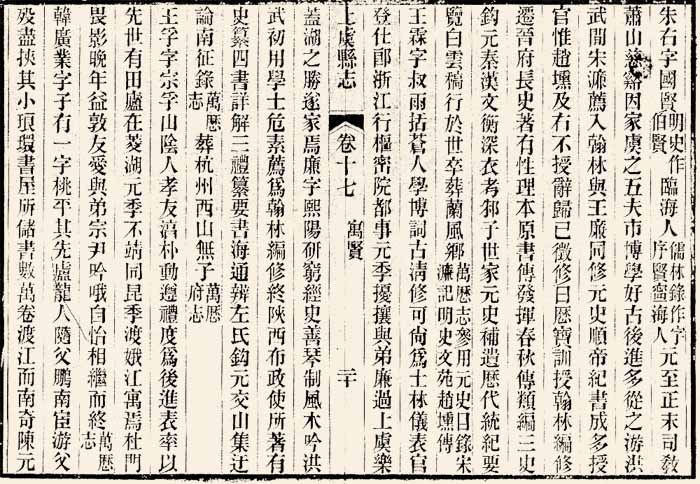 朱右字國賢明史作伯賢臨海人儒林錄作字序賢寧海人元至正末司敎
蕭山遂谿因家虞之五夫市博學好古後進多從之游洪
武閒宋濂薦入翰林與王廉同修元史順帝紀書成多授
官惟趙壎及右不授辭歸已徵修日歷寶訓授翰林編修
遷晉府長史著有性理本原書傳發揮春秋傳類編三史
鈎元秦漢文衡深衣考邾子世家元史補遺歷代統紀要
覽白雲稿行於世卒葬蘭風鄉萬歷志參用元史目錄宋濂記明史文苑趙壎傳
王霖字叔雨括蒼人學博詞古淸修可尙爲士林儀表官
登仕郞浙江行樞密院都事元季擾攘與弟廉過上虞樂
上虞縣志 卷十七 寓賢 二十
蓋湖之勝遂家焉廉字熙陽硏窮經史善琴制風木吟洪
武初用學士危素薦爲翰林編修終陝西布政使所著有
史纂四書詳解三禮纂要書海通辨左氏鈎元交山集迂
論南征錄萬歷志葬杭州西山無子萬歷府志
王孚字宗孚山陰人孝友滈朴動遵禮度爲後進表率以
先世有田廬在菱湖元季不靖同昆季渡娥江寓焉杜門
畏影晚年益敦友愛與弟宗尹吟哦自怡相繼而終萬歷志
韓廣業字子有一字桃平其先盧龍人隨父鵬南宦游父
歿盡挾其小琅環書屋所儲書數萬卷渡江而南奇陳元